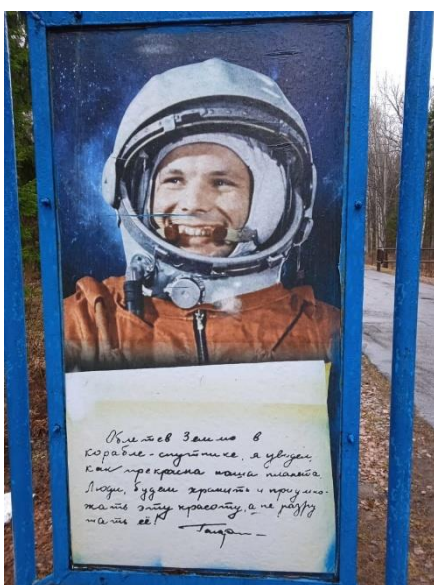 Облетев Землю в
корабле-спутнике, я увидел,
как прекрасна наша планета.
Люди, будем хранить и приумно-
жать эту красоту, а не разру
шать её!
Гагарин